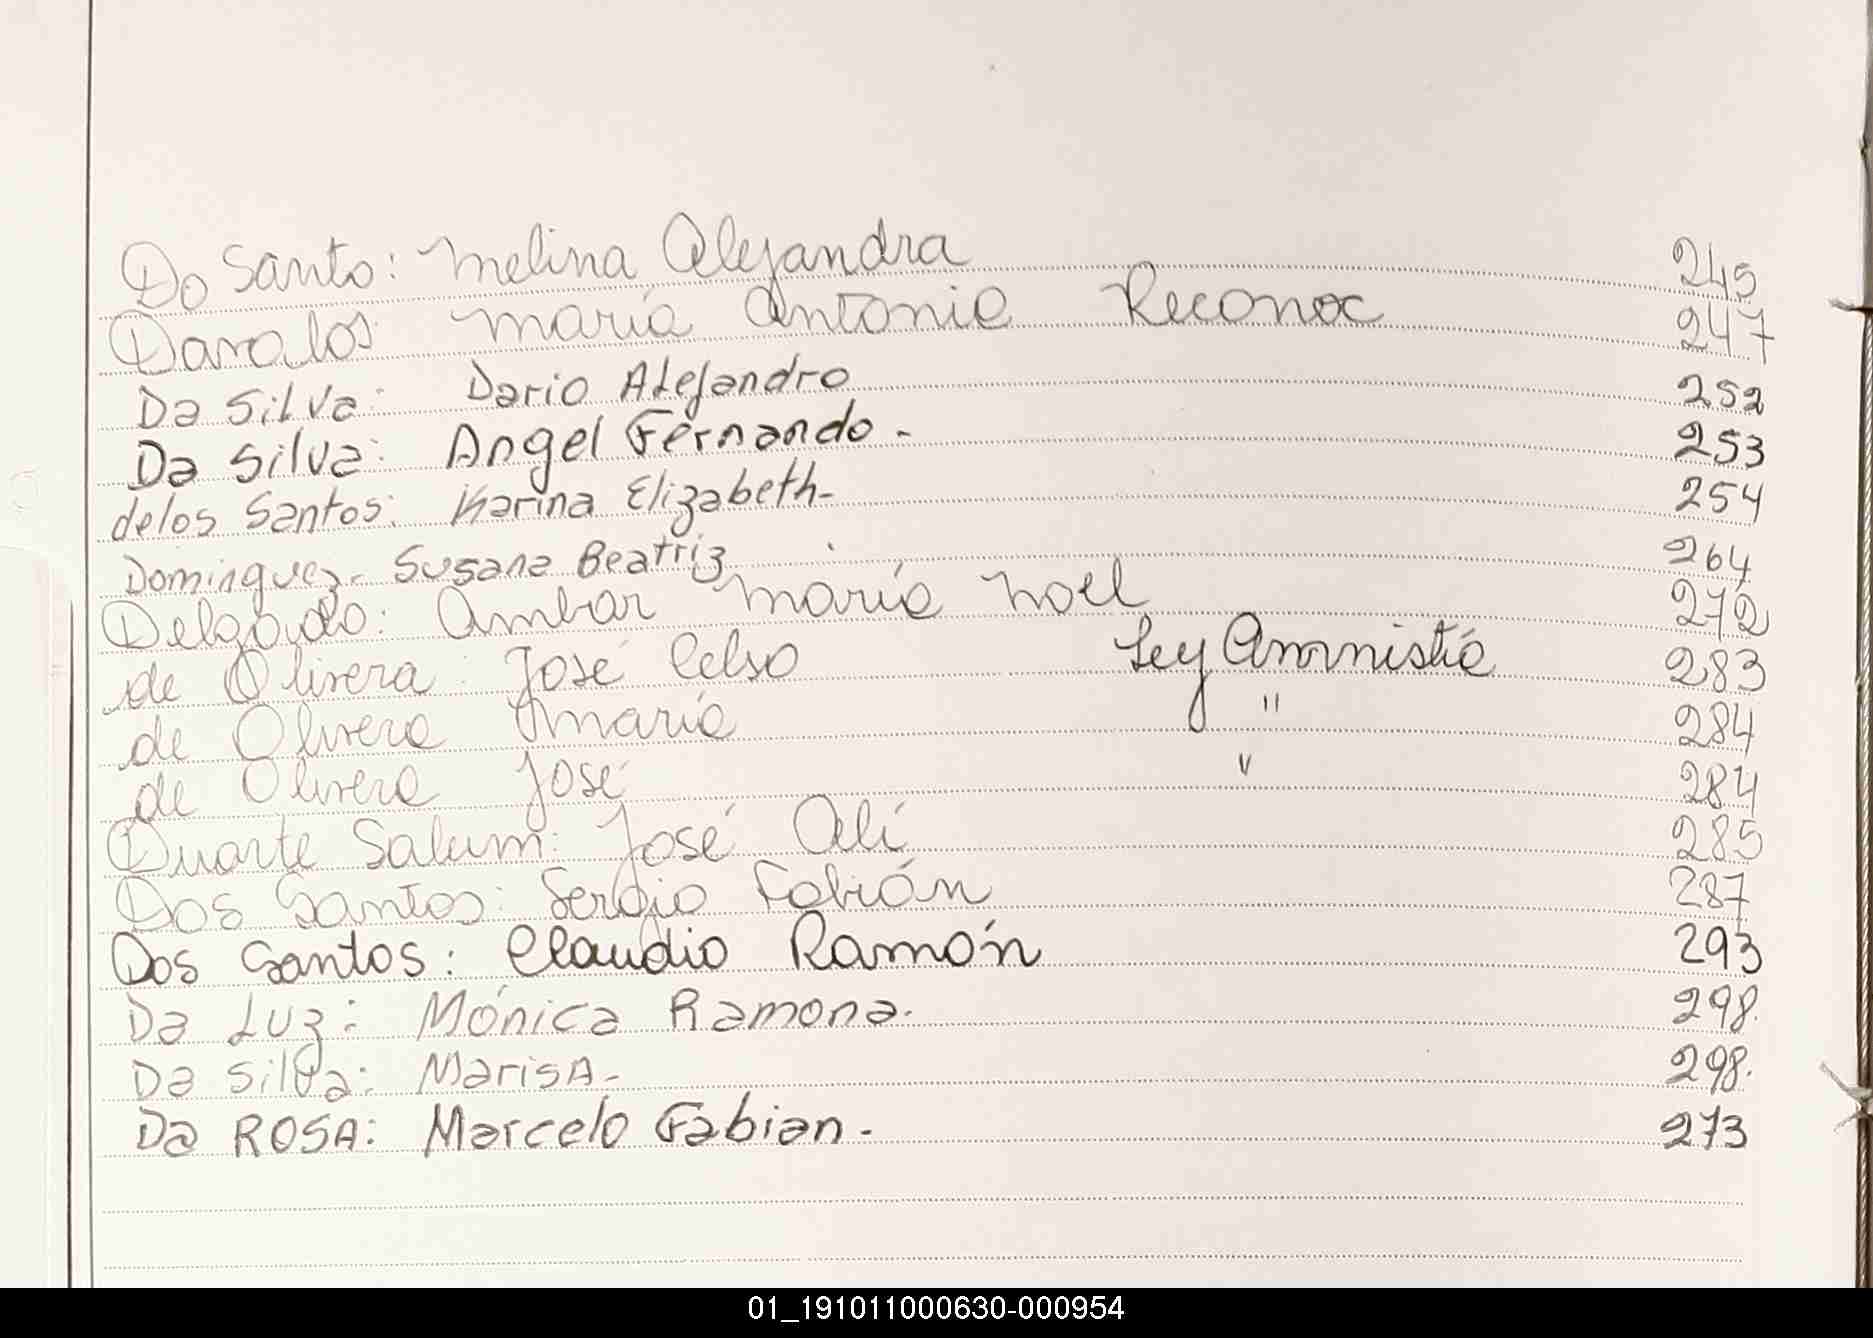 Do Santo: Melina Alejandra 245
Davalos María Antonia Reconoc 247
Da Silva: Dario Alejandro 252
Da Silva: Angel Fernando. 253
delos Santos: Karina Elizabeth- 254
Dominguez- Susana Beatriz 264
Delgado: Ambar María Noel 272
de Olivera: José Celso Ley Amnistía 283
de Olivera María " 284
de Olivera José " 284
Duarte Salum: José Alí 285
Dos Santos: Sergio Fabián 287
Dos Santos: Claudio Ramón 293
Da Luz: Mónica Ramona. 298.
Da Silva: Marisa- 298.
Da ROSA: Marcelo Fabian- 273
01_191011000630-000954